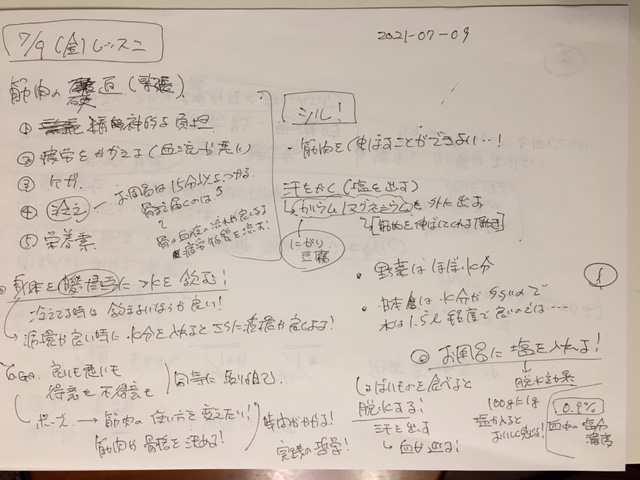 7/9 (金) レッスン
2021-07-09
筋肉の硬直 (緊張)
① 精神的な負担
② 疲労をかかえる (血流が悪い)
③ ケガ
④ 冷え
お風呂は15分以上つかる
骨まで届くのは
骨の血液の流れが良くなる
疲労物質を流す!
⑤ 栄養素
身体を暖い時に水を飲む!
冷えてる時は飲まないほうが良い!
循環が良い時に水分を入れるとさらに循環が良くなるよ!
良いも悪いも
得意も不得意も
同等に取り組む。
ポーズ → 筋肉の使い方を変えたい!
筋肉が骨格を決める!
時間がかかる!
実践の哲学!
シル!
・筋肉を伸ばすことができない…!
汗をかく (塩を出す)
カリウム/マグネシウムも外に出す
[筋肉を伸ばしてくれる]
にがり
豆腐
・野菜はほぼ水分
・日本食は水分が多いので
水は1.5ℓ程度で良いのでは…
1
◎ お風呂に塩を入れる!
脱水効果
しょぱいものを食べると
脱水する!
汗を出す
血が巡る!
100gに1g
塩が入ると
おいしく感じる!
0.9%
血中の塩分
濃度